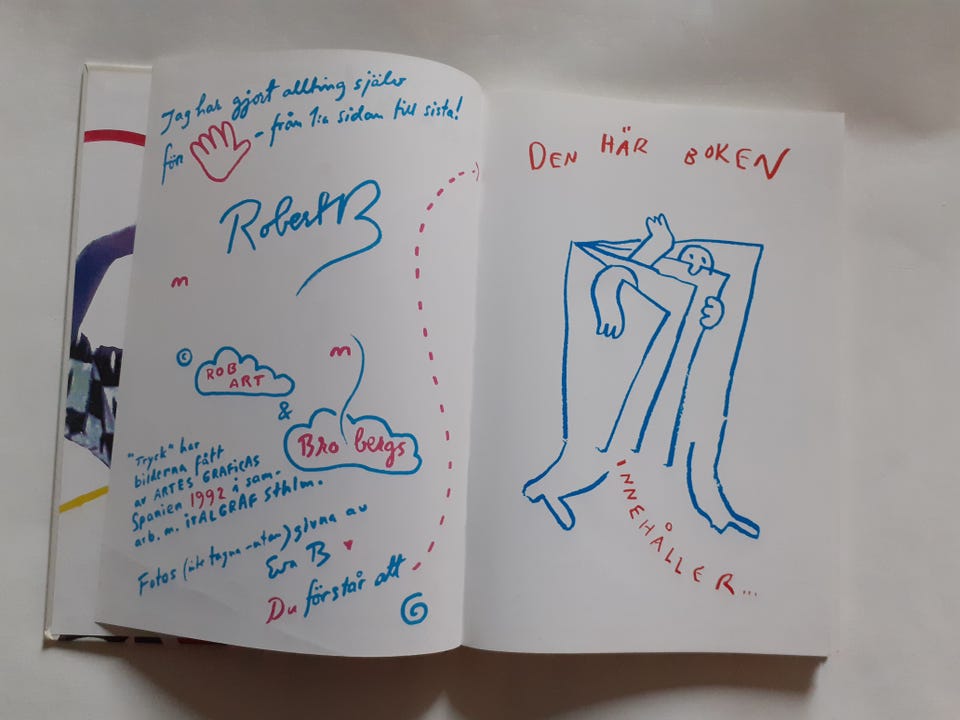 Jag har gjort allting själv
för - från 1:a sidan till sista!
Robert B
m
m
©
ROB
ART
&
Bro bergs
"Tryck" har
bilderna fått
av ARTES GRAFICAS
Spanien 1992 i sam-
arb. m. iTALGRAF Sthlm.
Fotos (inte tagna -utan) givna av
Eva B
Du förstår att
DEN HÄR BOKEN
INNEHÅLLER...